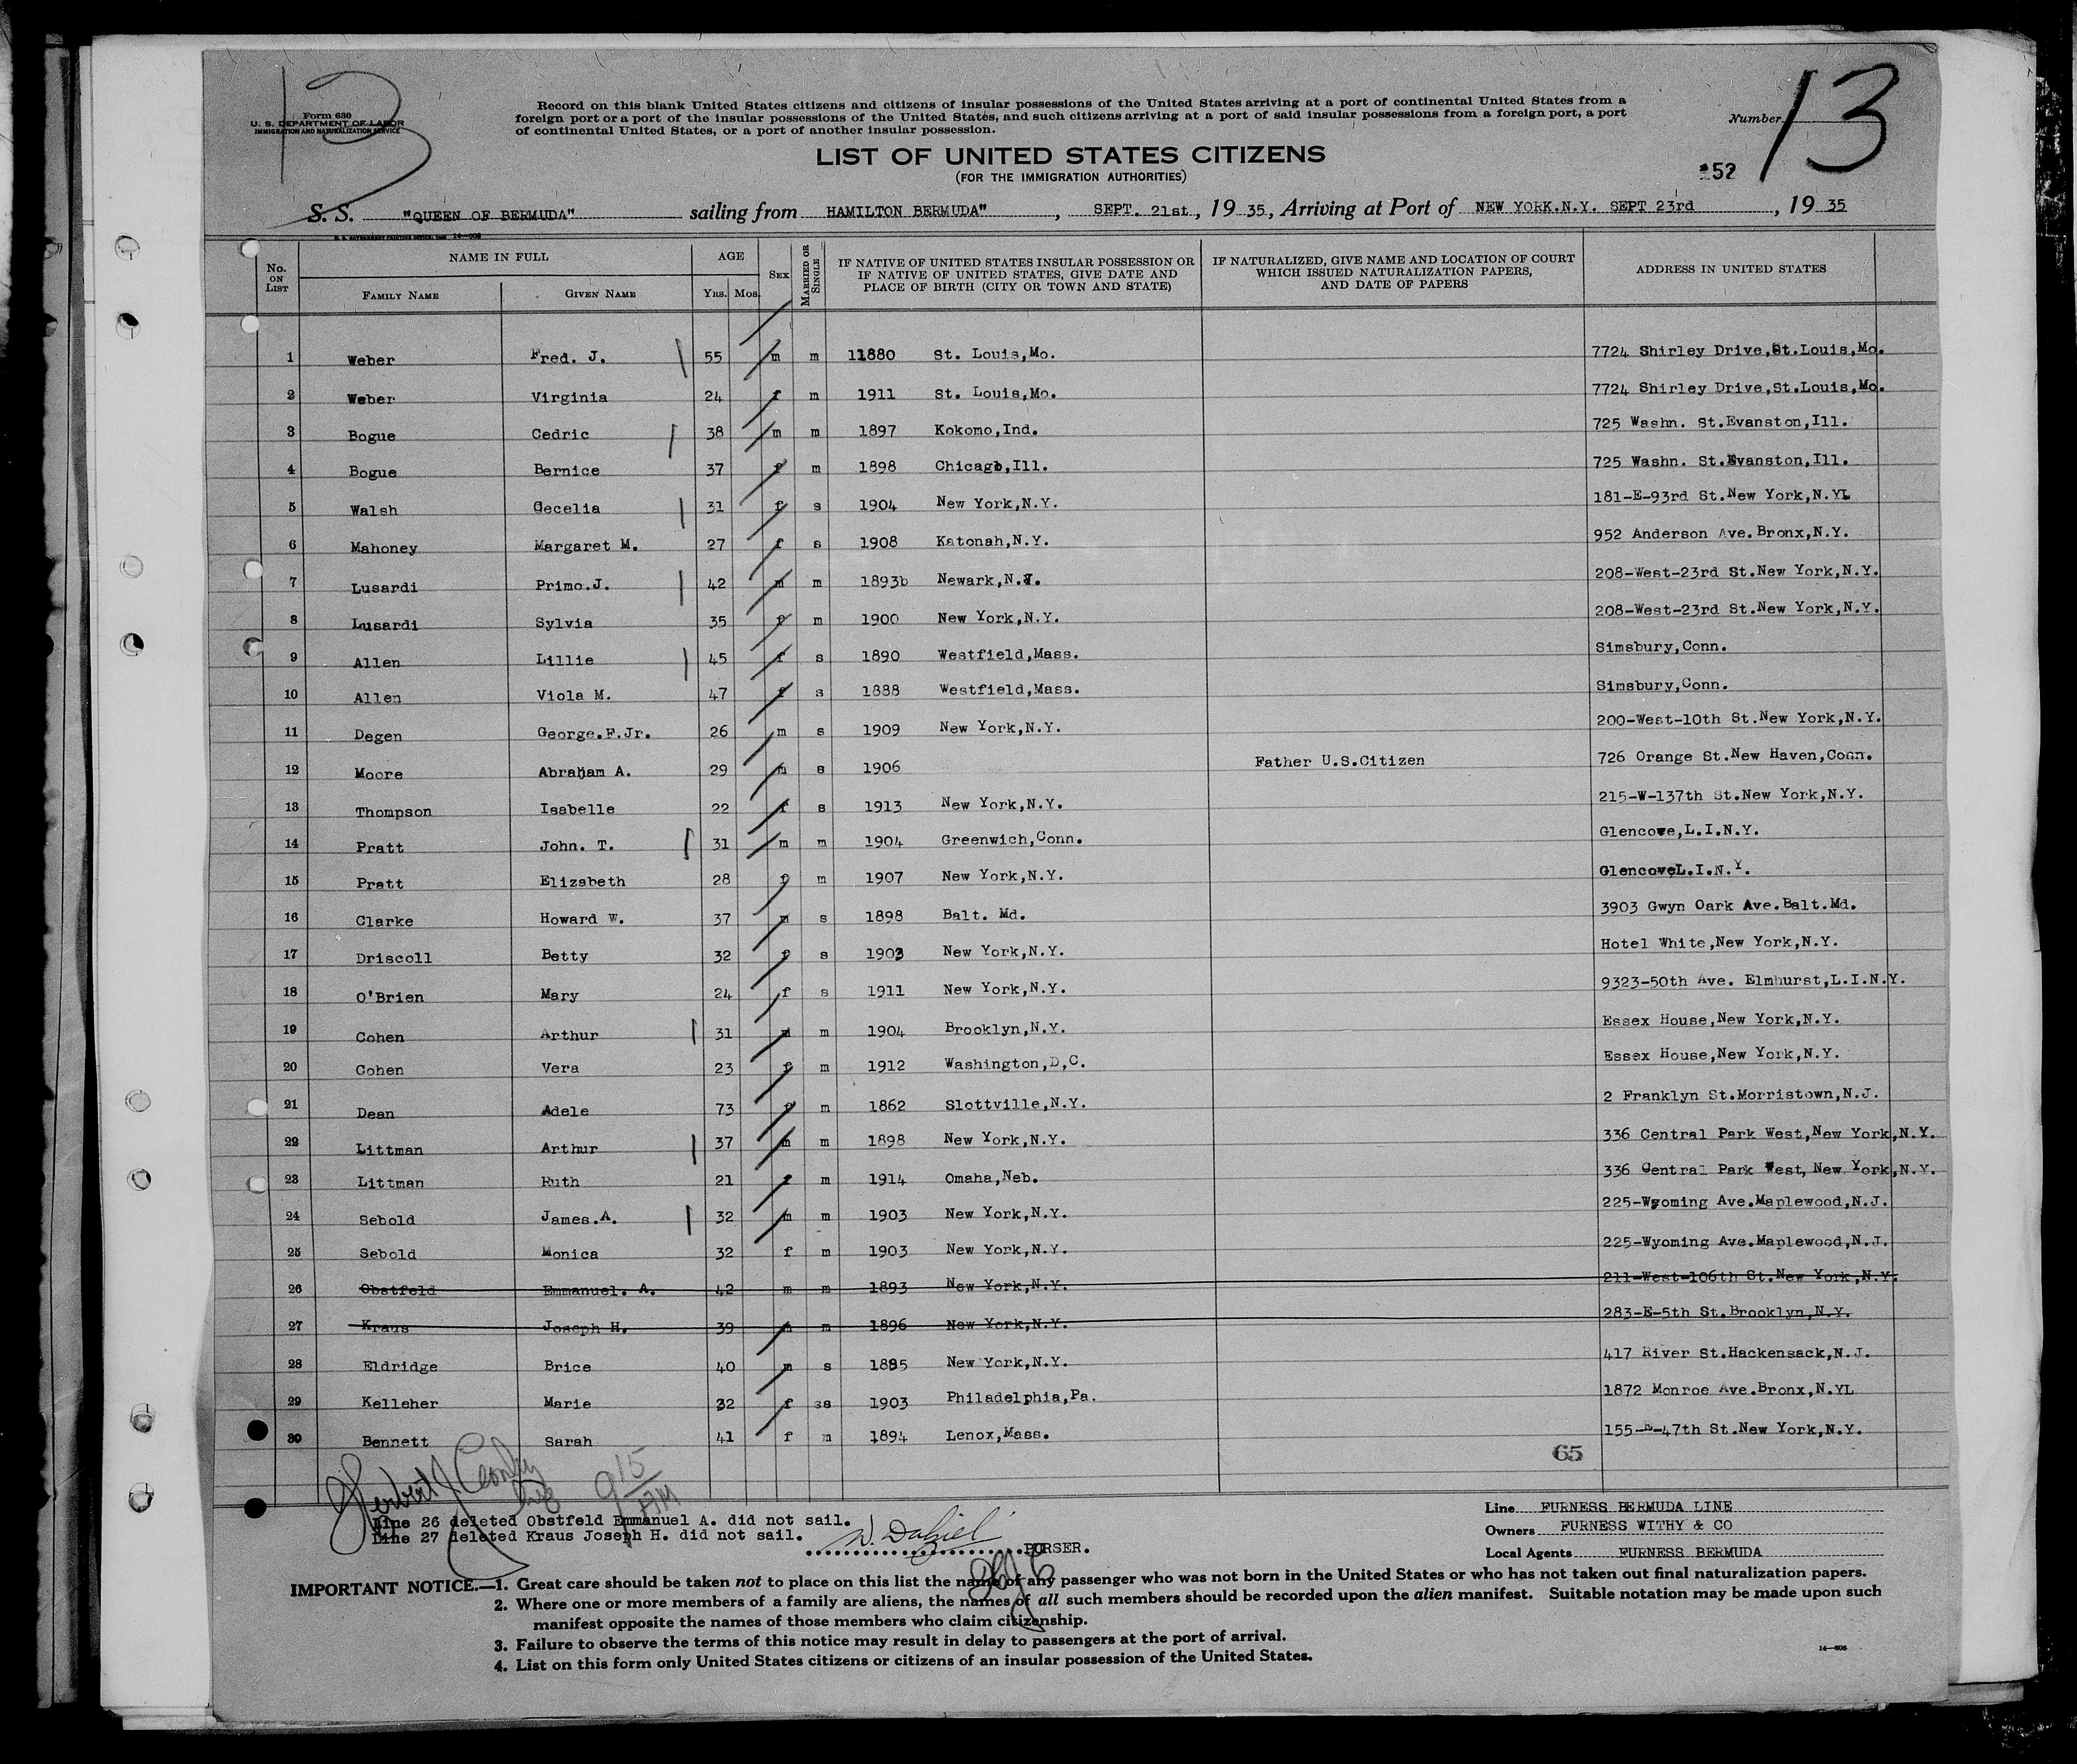 13
Form 630
U. S. DEPARTMENT OF LABOR
IMMIGRATION AND NATURALIZATION SERVICE
Record on this blank United States citizens and citizens of insular possessions of the United States arriving at a port of continental United States from a
foreign port or a port of the insular possessions of the United States, and such citizens arriving at a port of said insular possessions from a foreign port, a port
of continental United States, or a port of another insular possession.
Number 13
LIST OF UNITED STATES CITIZENS
(FOR THE IMMIGRATION AUTHORITIES)
52
S. S. "QUEEN OF BERMUDA" sailing from HAMILTON BERMUDA", SEPT. 21st, 19 35, Arriving at Port of NEW YORK.N.Y. SEPT 23rd, 19 35
No. ON LIST NAME IN FULL FAMILY NAME GIVEN NAME AGE YRS. MOS. SEX MARRIED OR SINGLE IF NATIVE OF UNITED STATES INSULAR POSSESSION OR IF NATIVE OF UNITED STATES, GIVE DATE AND PLACE OF BIRTH (CITY OR TOWN AND STATE) IF NATURALIZED, GIVE NAME AND LOCATION OF COURT WHICH ISSUED NATURALIZATION PAPERS, AND DATE OF PAPERS ADDRESS IN UNITED STATES
1 Weber Fred. J. 55 m m 11880 St. Louis,Mo. 7724 Shirley Drive,St.Louis,Mo.
2 Weber Virginia 24 f m 1911 St. Louis,Mo. 7724 Shirley Drive,St.Louis,Mo.
3 Bogue Cedric 38 m m 1897 Kokomo,Ind. 725 Washn. St.Evanston,Ill.
4 Bogue Bernice 37 f m 1898 Chicago,Ill. 725 Washn. St.Evanston,Ill.
5 Walsh Cecelia 31 f s 1904 New York,N.Y. 181-E-93rd St.New York,N.YL
6 Mahoney Margaret M. 27 f s 1908 Katonah,N.Y. 952 Anderson Ave.Bronx,N.Y.
7 Lusardi Primo.J. 42 m m 1893b Newark,N.J. 208-West-23rd St.New York,N.Y.
8 Lusardi Sylvia 35 f m 1900 New York,N.Y. 208-West-23rd St.New York,N.Y.
9 Allen Lillie 45 f s 1890 Westfield,Mass. Simsbury,Conn.
10 Allen Viola M. 47 f s 1888 Westfield,Mass. Simsbury,Conn.
11 Degen George.F.Jr. 26 m s 1909 New York,N.Y. 200-West-10th St.New York,N.Y.
12 Moore Abraham A. 29 m s 1906 Father U.S.Citizen 726 Orange St.New Haven,Conn.
13 Thompson Isabelle 22 f s 1913 New York,N.Y. 215-W-137th St.New York,N.Y.
14 Pratt John. T. 31 m m 1904 Greenwich,Conn. Glencove,L.I.N.Y.
15 Pratt Elizabeth 28 f m 1907 New York,N.Y. GlencoveL.I.N.Y.
16 Clarke Howard W. 37 m s 1898 Balt. Md. 3903 Gwyn Oark Ave.Balt.Md.
17 Driscoll Betty 32 f s 1903 New York,N.Y. Hotel White,New York,N.Y.
18 O'Brien Mary 24 f s 1911 New York,N.Y. 9323-50th Ave. Elmhurst,L.I.N.Y.
19 Cohen Arthur 31 m m 1904 Brooklyn,N.Y. Essex House,New York,N.Y.
20 Cohen Vera 23 f m 1912 Washington,D,C. Essex House,New York,N.Y.
21 Dean Adele 73 f m 1862 Slottville,N.Y. 2 Franklyn St.Morristown,N.J.
22 Littman Arthur 37 m m 1898 New York,N.Y. 336 Central Park West,New York,N.Y.
23 Littman Ruth 21 f m 1914 Omaha,Neb. 336 Central Park West,New York,N.Y.
24 Sebold James.A. 32 m m 1903 New York,N.Y. 225-Wyoming Ave.Maplewood,N.J.
25 Sebold Monica 32 f m 1903 New York,N.Y. 225-Wyoming Ave.Maplewood,N.J.
26 Obstfeld Emmanuel. A. 42 m m 1893 New York,N.Y. 211-West-106th St.New York,N.Y.
27 Kraus Joseph H. 39 m m 1896 New York,N.Y. 283-E-5th St.Brooklyn,N.Y.
28 Eldridge Brice 40 m s 1895 New York,N.Y. 417 River St.Hackensack,N.J.
29 Kelleher Marie 32 f ss 1903 Philadelphia,Pa. 1872 Monroe Ave.Bronx,N.YL
30 Bennett Sarah 41 f m 1894 Lenox,Mass. 155-E-47th St.New York,N.Y.
65
Herbert J. 9 15 AM
Line 26 deleted Obstfeld Emmanuel A. did not sail.
Line 27 deleted Kraus Joseph H. did not sail.
PURSER.
Line FURNESS BERMUDA LINE
Owners FURNESS WITHY & CO
Local Agents FURNESS BERMUDA
IMPORTANT NOTICE.—1. Great care should be taken not to place on this list the name of any passenger who was not born in the United States or who has not taken out final naturalization papers.
2. Where one or more members of a family are aliens, the names of all such members should be recorded upon the alien manifest. Suitable notation may be made upon such
manifest opposite the names of those members who claim citizenship.
3. Failure to observe the terms of this notice may result in delay to passengers at the port of arrival.
4. List on this form only United States citizens or citizens of an insular possession of the United States.
14—606